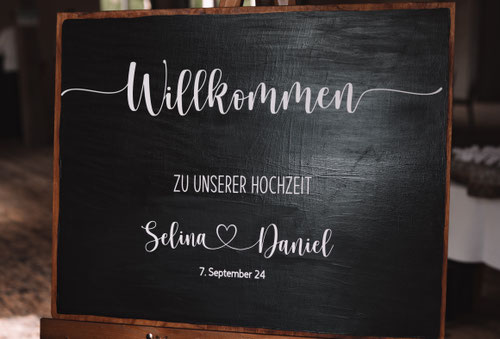 Willkommen
ZU UNSERER HOCHZEIT
Selina ♡ Daniel
7. September 24